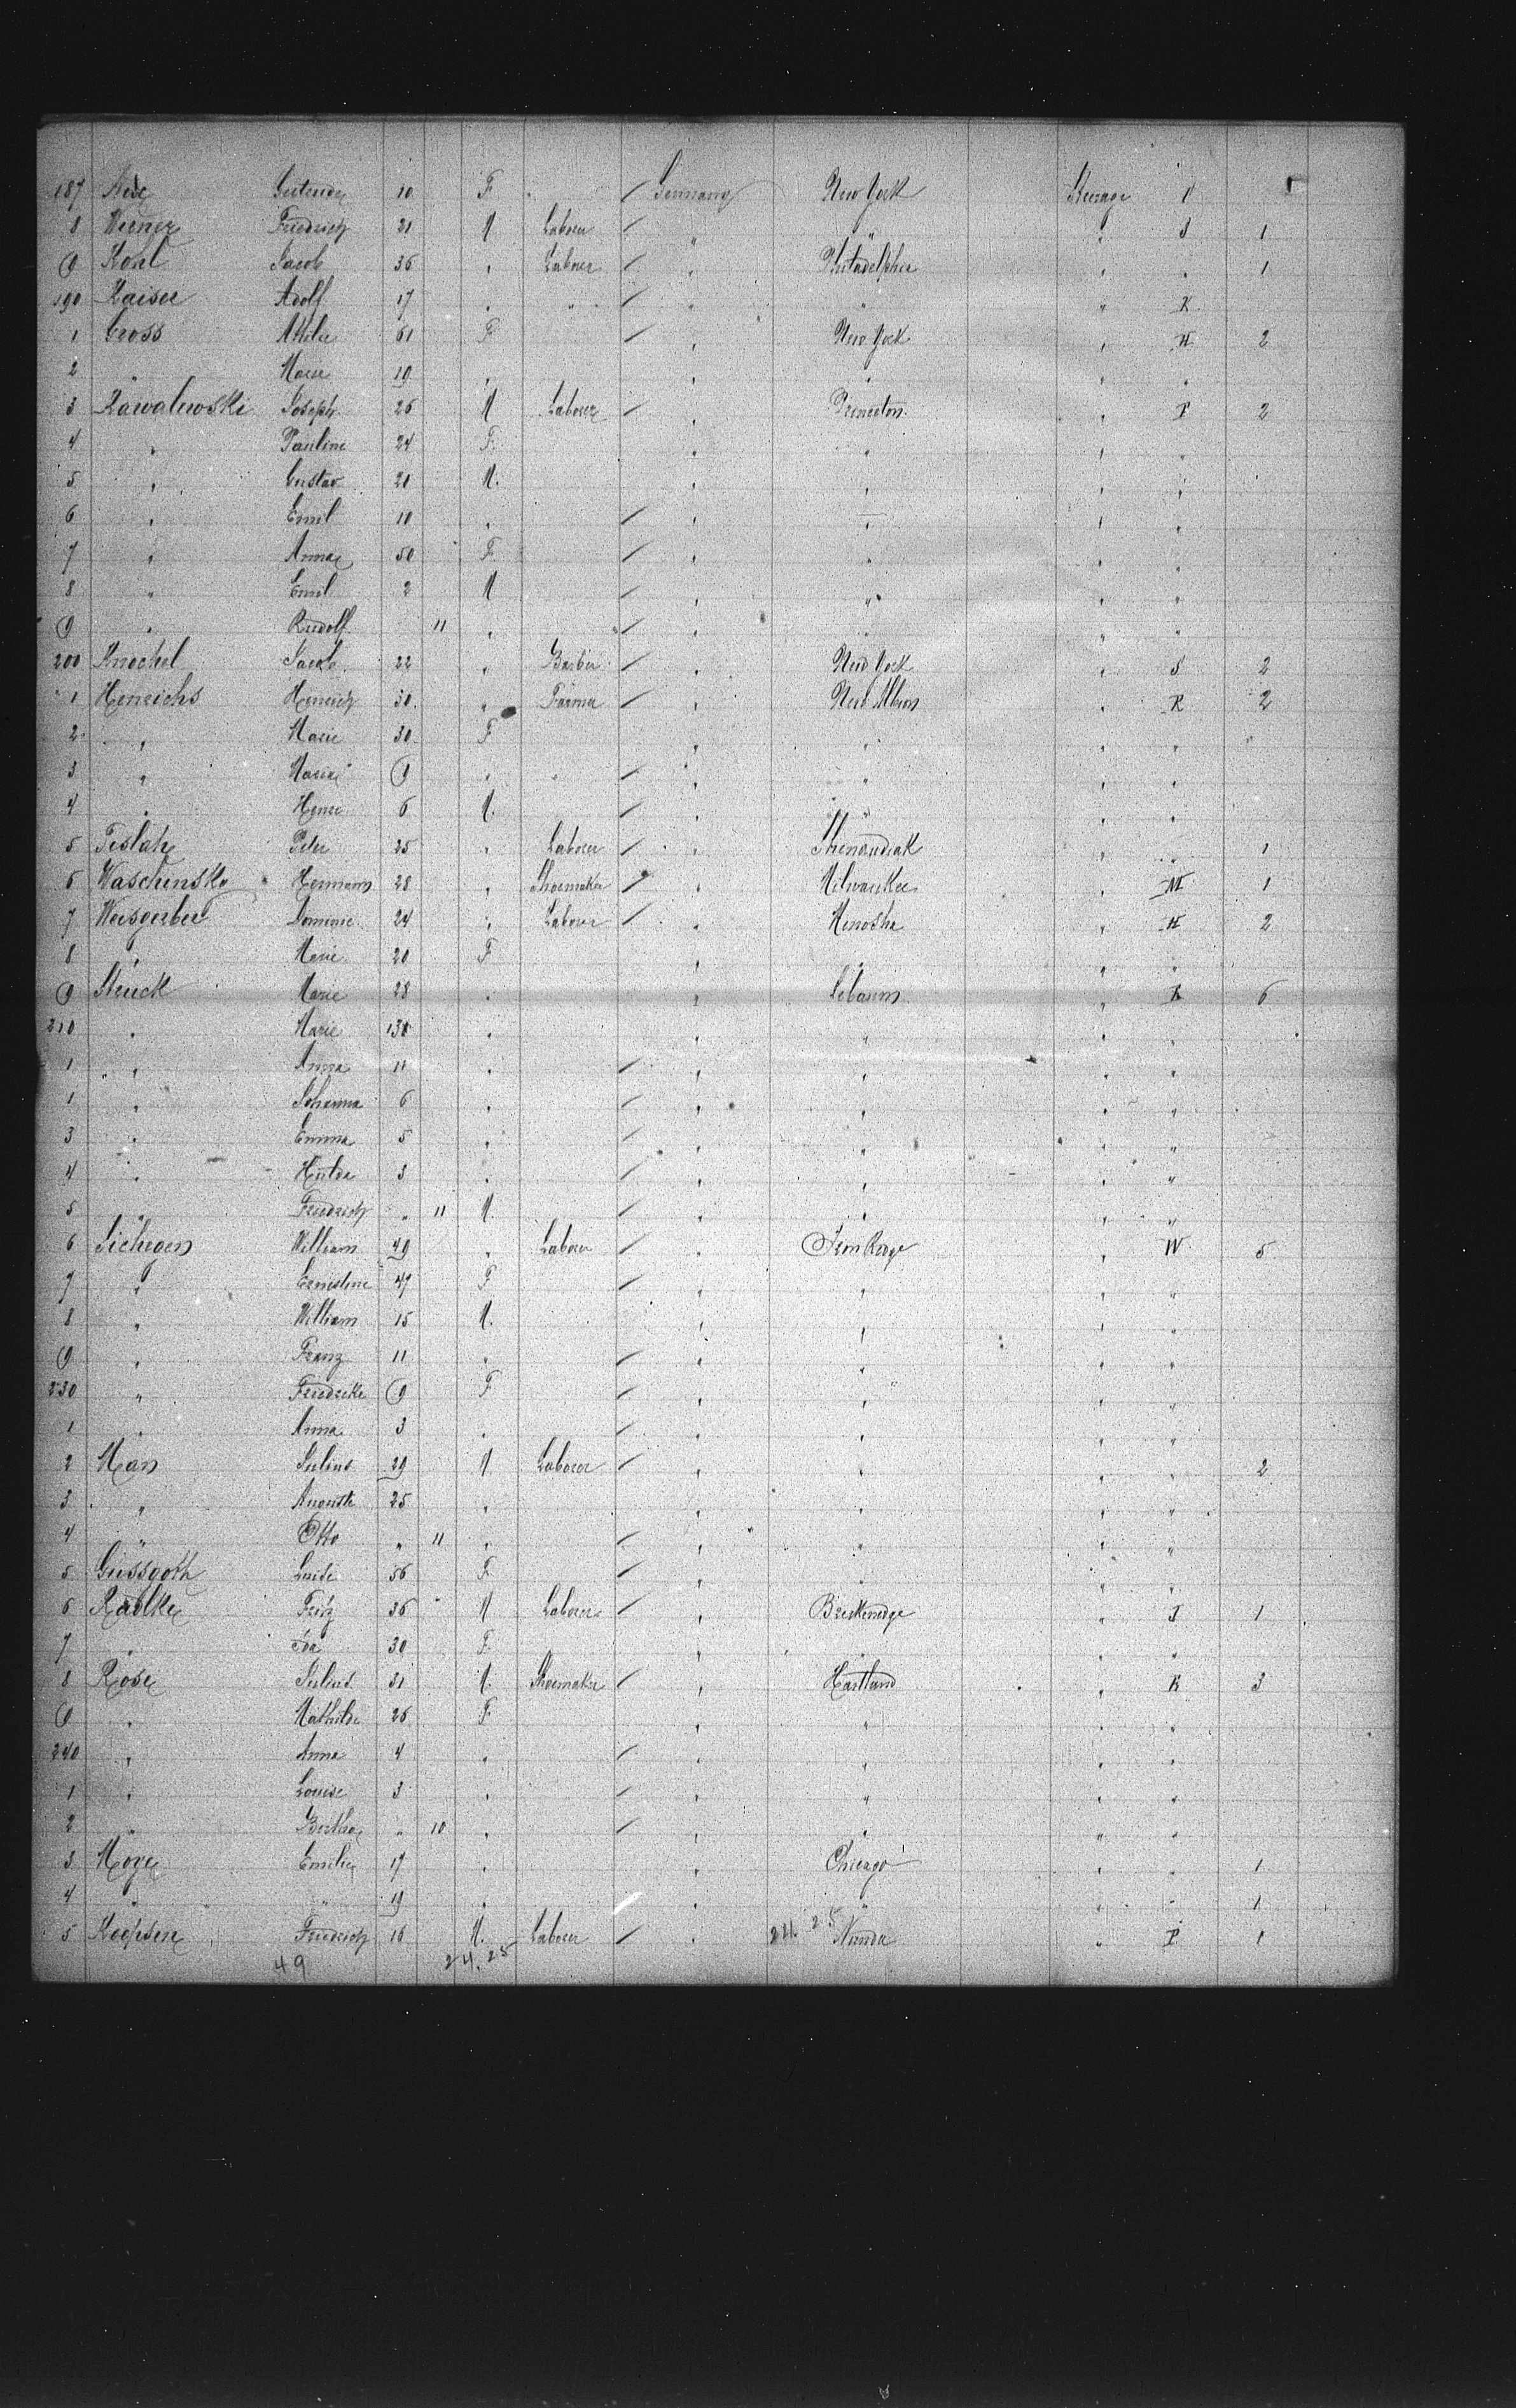 187 Gertrude 10 F / Germany New York Steerage 1
8 Werner Friedrich 21 M Laborer / " " " S 1
9 Kohl Jacob 36 " Laborer / " Philadelphia " " 1
190 Kaiser Adolf 17 " " / " " " K
1 Gross 61 F / " New York " H 2
2 " Marie 19 " " " " "
3 Kawalewski Joseph 26 M Laborer / " Princeton " P 2
4 " Pauline 24 F " " " "
5 " Gustav 21 M. " " " "
6 " Emil 10 " / " " " "
7 " Anna 50 F / " " " "
8 " Emil 2 M / " " " "
9 " Rudolf 11 " / " " " "
200 Knochel Jacob 22 " Barber / " New York " S 2
1 Henrichs Heinrich 30 " Farmer / " New Albion " R 2
2 " Marie 30 F " " " "
3 " Maria 9 " / " " " "
4 " 6 M. / " " " "
5 Teslah Peter 25 " Laborer / " Shenandoah " " 1
6 Waschinsky Hermann 28 " Shoemaker / " Milwaukee " M 1
7 Weisgerber 24 " Laborer / " Menosha " H 2
8 " Marie 20 F " " " "
9 Steuck Marie 28 " " Lebanon " R 6
210 " Marie " " " " "
1 " Anna 11 " / " " " "
1 " Johanna 6 " / " " " "
3 " Emma 5 " / " " " "
4 " Hulda 3 " / " " " "
5 " Friedrich " 11 M. / " " " "
6 William 49 " Laborer / " " W 5
7 " Ernestine 47 F / " " " "
8 " William 15 M. " " " "
9 " Franz 11 " / " " " "
230 " Friedreke 9 F / " " " "
1 " Anna 3 " / " " " "
2 Man Julius 29 M Laborer / " " " " 2
3 " Auguste 25 " " " " "
4 " Otto " 11 " / " " " "
5 Luise 56 F / " " " "
6 Radtke Fritz 36 M Laborer / " Breckenridge " J 1
7 " Ida 30 F " " " "
8 Rose Julius 31 M. Shoemaker / " Hartland " R 3
9 " Mathilde 26 F " " " "
240 " Anna 4 " / " " " "
1 " Louise 3 " / " " " "
2 " Bertha " 10 " / " " " "
3 Emilie 17 " " Chicago " " 1
4 " " 19 " / " " " " 1
5 Koepsen Friedrich 16 M. Laborer / " 24. 25 Nunda " P 1
49 24. 25